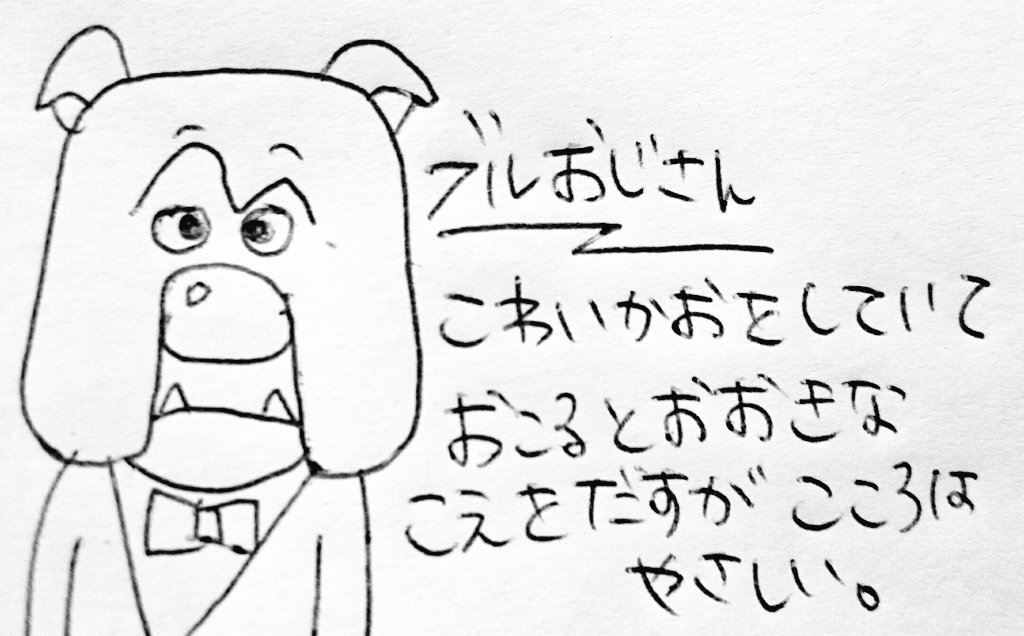 ブルおじさん
こわいかおをしていて
おこるとおおきな
こえをだすが こころは
やさしい。